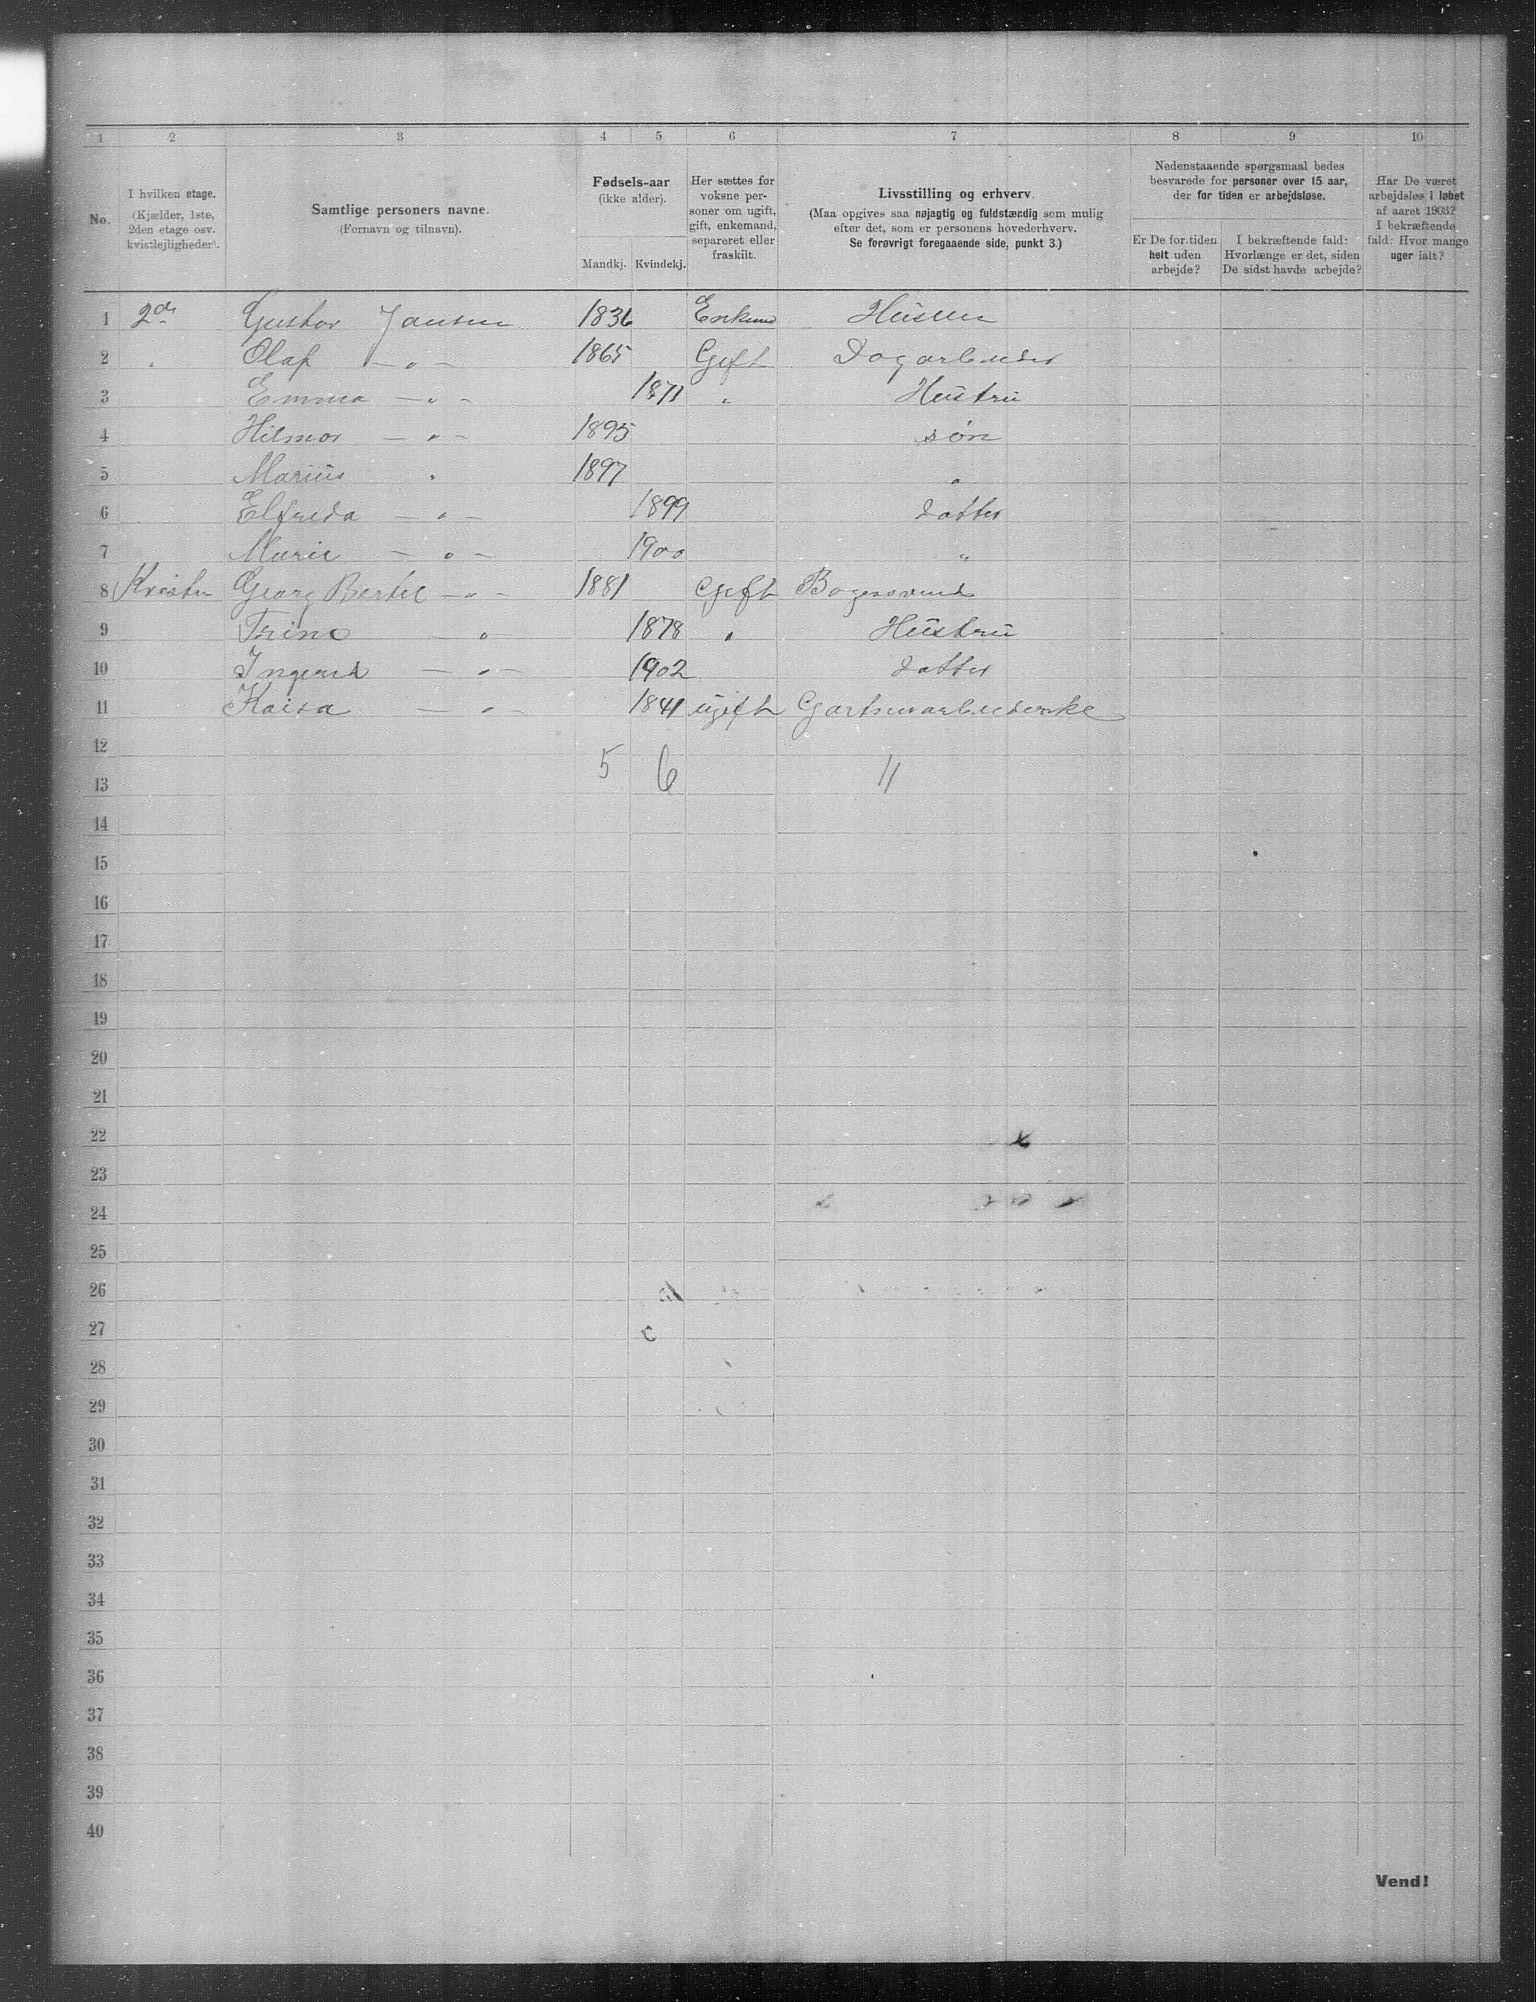 1 2 3 4 5 6 7 8 9 10
No.
I hvilken etage.
(Kjælder, 1ste,
2den etage osv.
kvistlejligheder).
Samtlige personers navne.
(Fornavn og tilnavn).
Fødsels-aar
(ikke alder).
Mandkj. Kvindekj.
Her sættes for
voksne per-
soner om ugift,
gift, enkemand,
separeret eller
fraskilt.
Livsstilling og erhverv.
(Maa opgives saa nøjagtig og fuldstærdig som mulig
efter det, som er personens hovederhverv.
Se forøvrigt foregaaende side, punkt 3.)
Nedenstaaende spørgsmaal bedes
besvarede for personer over 15 aar,
der for tiden er arbejdsløse.
Er De for tiden
helt uden
arbejde?
I bekræftende fald:
Hvorlænge er det, siden
De sidst havde arbejde?
Har De været
arbejdsløs i løbet
af aaret 1903?
I bekræftende
fald: Hvor mange
uger ialt?
1 2den Gustav Jansen 1836 Enkemd
2 " Olaf — " — 1865 Gift Dagarbeider
3 Emma — " — 1871 " Hustru
4 Hilmar — " — 1895 søn
5 Marius " 1897 "
6 Elfrida — " — 1899 datter
7 Marie — " — 1900 "
8 Kvisten Georg Bertel — " — 1881 Gift Bogesvend
9 Trine — " 1878 " Hustru
10 Ingerid — " — 1902 datter
11 Kaisa — " — 1841 ugift Gartnerarbeiderske
12
5 6 11
13
14
15
16
17
18
19
20
21
22
23
24
25
26
27
28
29
30
31
32
33
34
35
36
37
38
39
40
Vend!